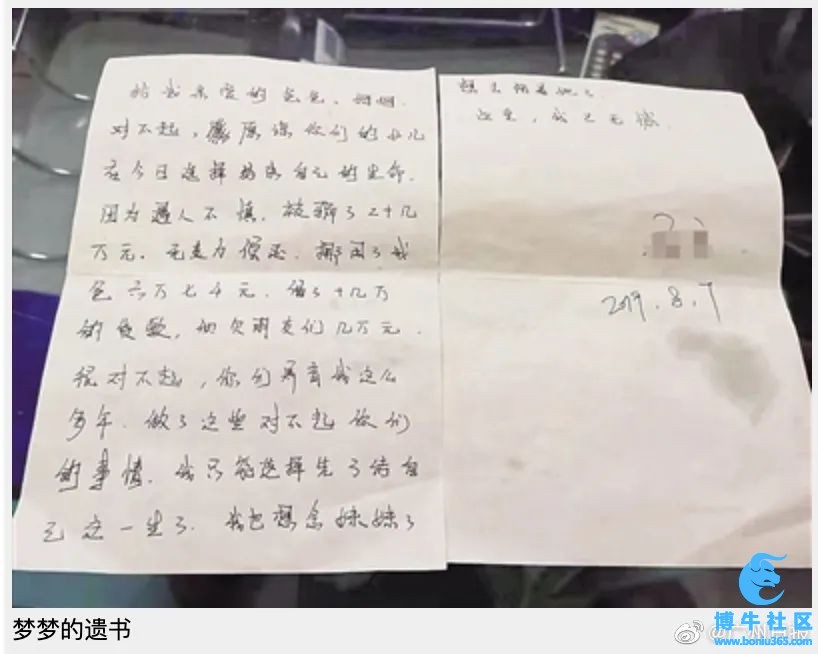 给我亲爱的爸爸、妈妈.
对不起，原谅你们的女儿
在今日选择结束自己的生命.
因为遇人不慎.被骗了二十几
万元.无力偿还.挪用了我
爸六万七千元.借了十几万
的贷款，欠朋友们几万元.
很对不起，你们养育我这么
多年.做了这些对不起你们
的事情.我只能选择先了结自
己这一生了.我也想念妹妹了
想去陪着她了.
，我已无憾.
2019.8.7
梦梦的遗书
博牛社区
www.boniu365.com